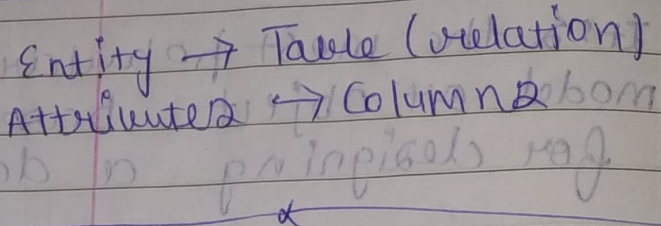 Entity → Table (relation)
Attributes → Columns